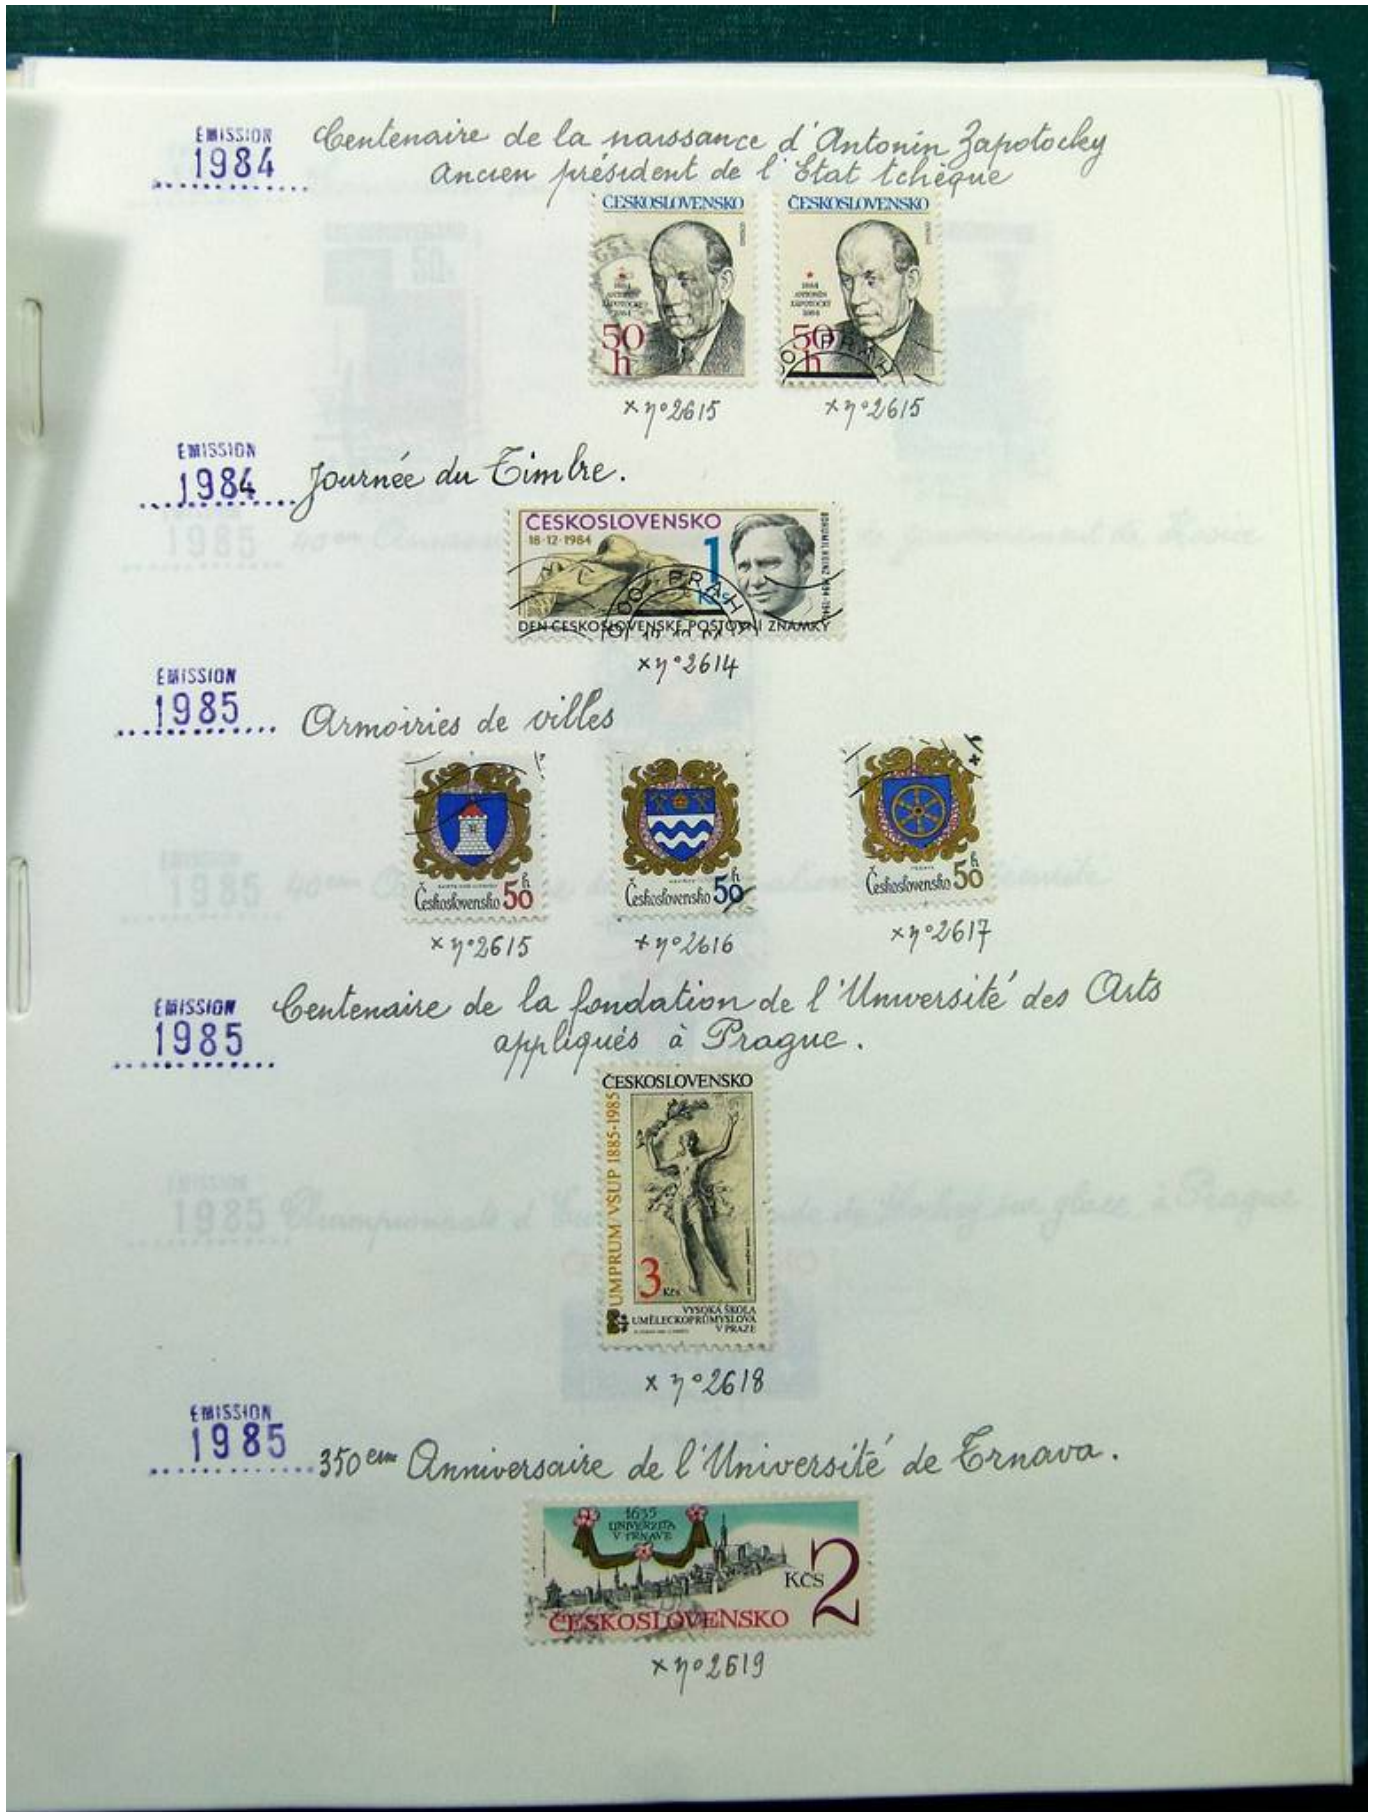 EMISSION
1984
Centenaire de la naissance d'Antonin Zapotocky
Ancien président de l'Etat tchèque
ČESKOSLOVENSKO
1884
ANTONÍN
ZÁPOTOCKÝ
1984
50
h
ČESKOSLOVENSKO
1884
ANTONÍN
ZÁPOTOCKÝ
1984
50
h
PRAH
x n° 2615
x n° 2615
EMISSION
1984
Journée du Timbre.
ČESKOSLOVENSKO
18·12·1984
1
Kčs
BOHUMIL HEINZ 1894-1940
PRAH
DEN ČESKOSLOVENSKÉ POŠTOVNÍ ZNÁMKY
x n° 2614
EMISSION
1985
Armoiries de villes
Československo 50 h
Československo 50 h
Československo 50 h
x n° 2615
x n° 2616
x n° 2617
EMISSION
1985
Centenaire de la fondation de l'Université des Arts
appliqués à Prague.
ČESKOSLOVENSKO
UMPRUM/VŠUP 1885-1985
3 Kčs
VYSOKÁ ŠKOLA
UMĚLECKOPRŮMYSLOVÁ
V PRAZE
x n° 2618
EMISSION
1985
350em Anniversaire de l'Université de Trnava.
1635
UNIVERZITA
V TRNAVE
Kčs 2
ČESKOSLOVENSKO
x n° 2619